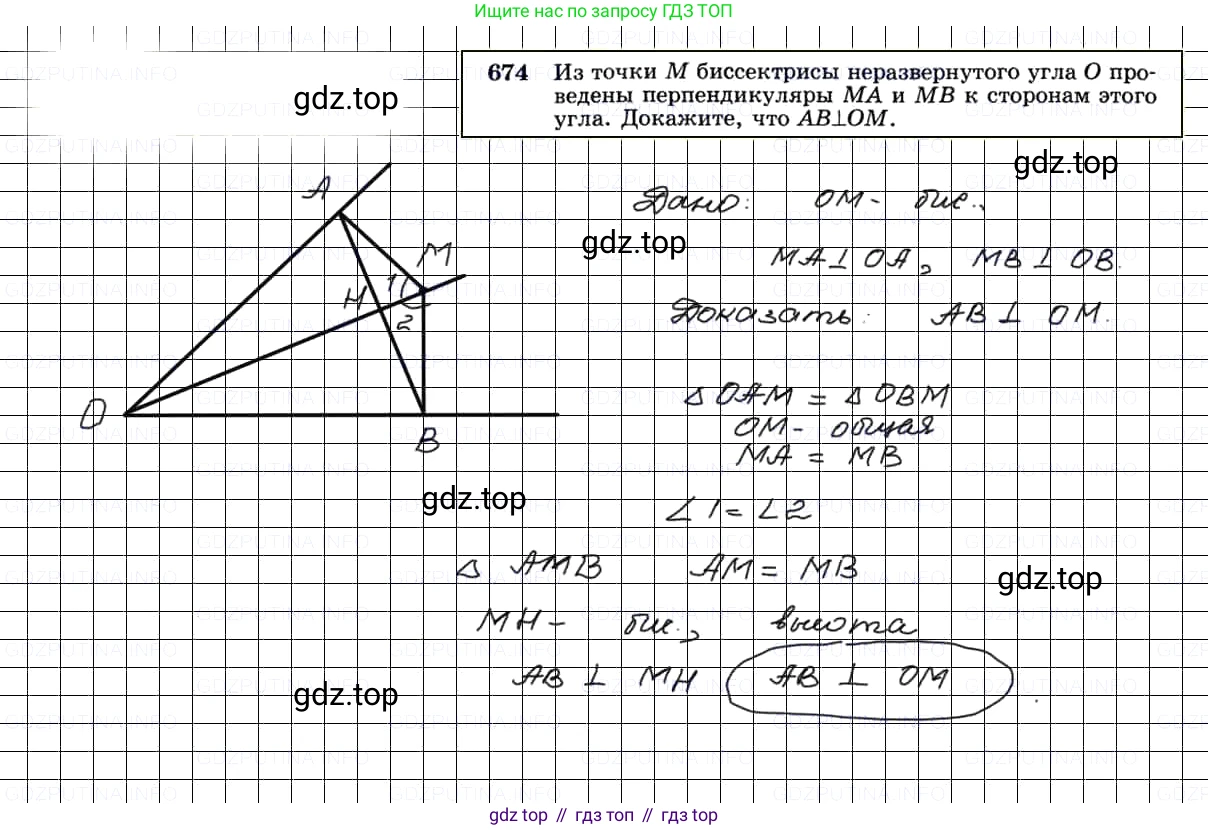 Ищите нас по запросу ГДЗ ТОП
674 Из точки M биссектрисы неразвернутого угла O про-
ведены перпендикуляры MA и MB к сторонам этого
угла. Докажите, что AB⊥OM.
gdz.top
gdz.top
Дано: OM - бис.,
gdz.top
MA ⊥ OA, MB ⊥ OB.
Доказать: AB ⊥ OM.
A
M
H
1
2
O
B
△ OAM = △ OBM
OM - общая
MA = MB
gdz.top
∠1 = ∠2
△ AMB AM = MB
gdz.top
MH - бис., высота
AB ⊥ MH AB ⊥ OM
gdz.top
gdz.top // гдз топ // гдз top